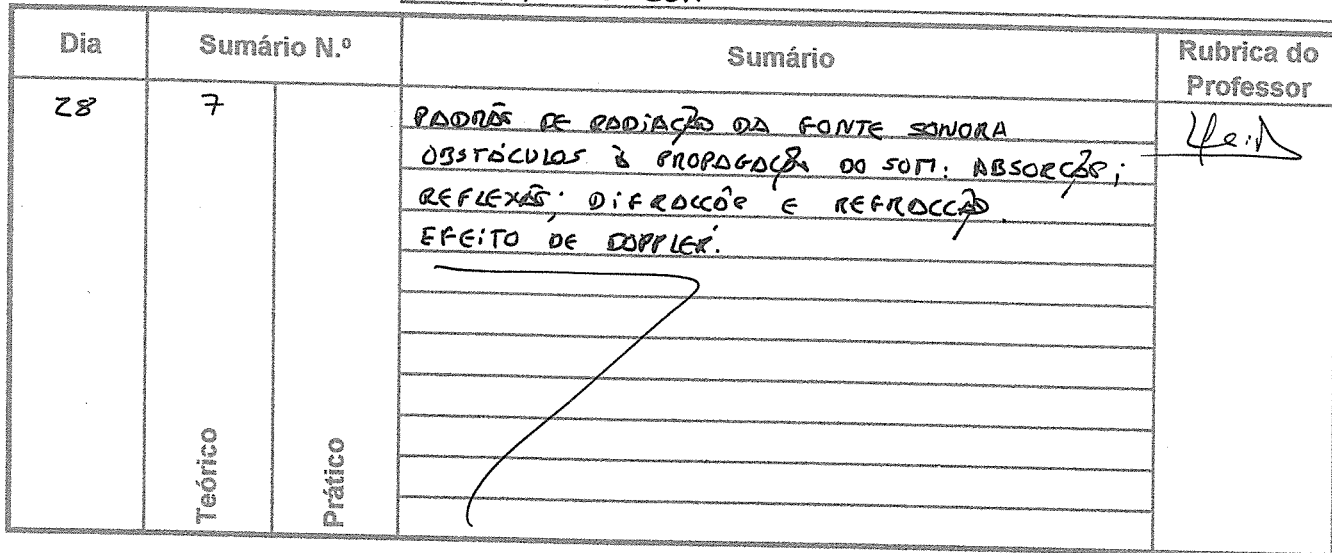 Dia Sumário N.º Sumário Rubrica do Professor
28 7
PADRÕES DE RADIAÇÃO DA FONTE SONORA
OBSTÁCULOS À PROPAGAÇÃO DO SOM: ABSORÇÃO;
REFLEXÃO; DIFRACÇÃO E REFRACÇÃO.
EFEITO DE DOPPLER.
Teórico Prático